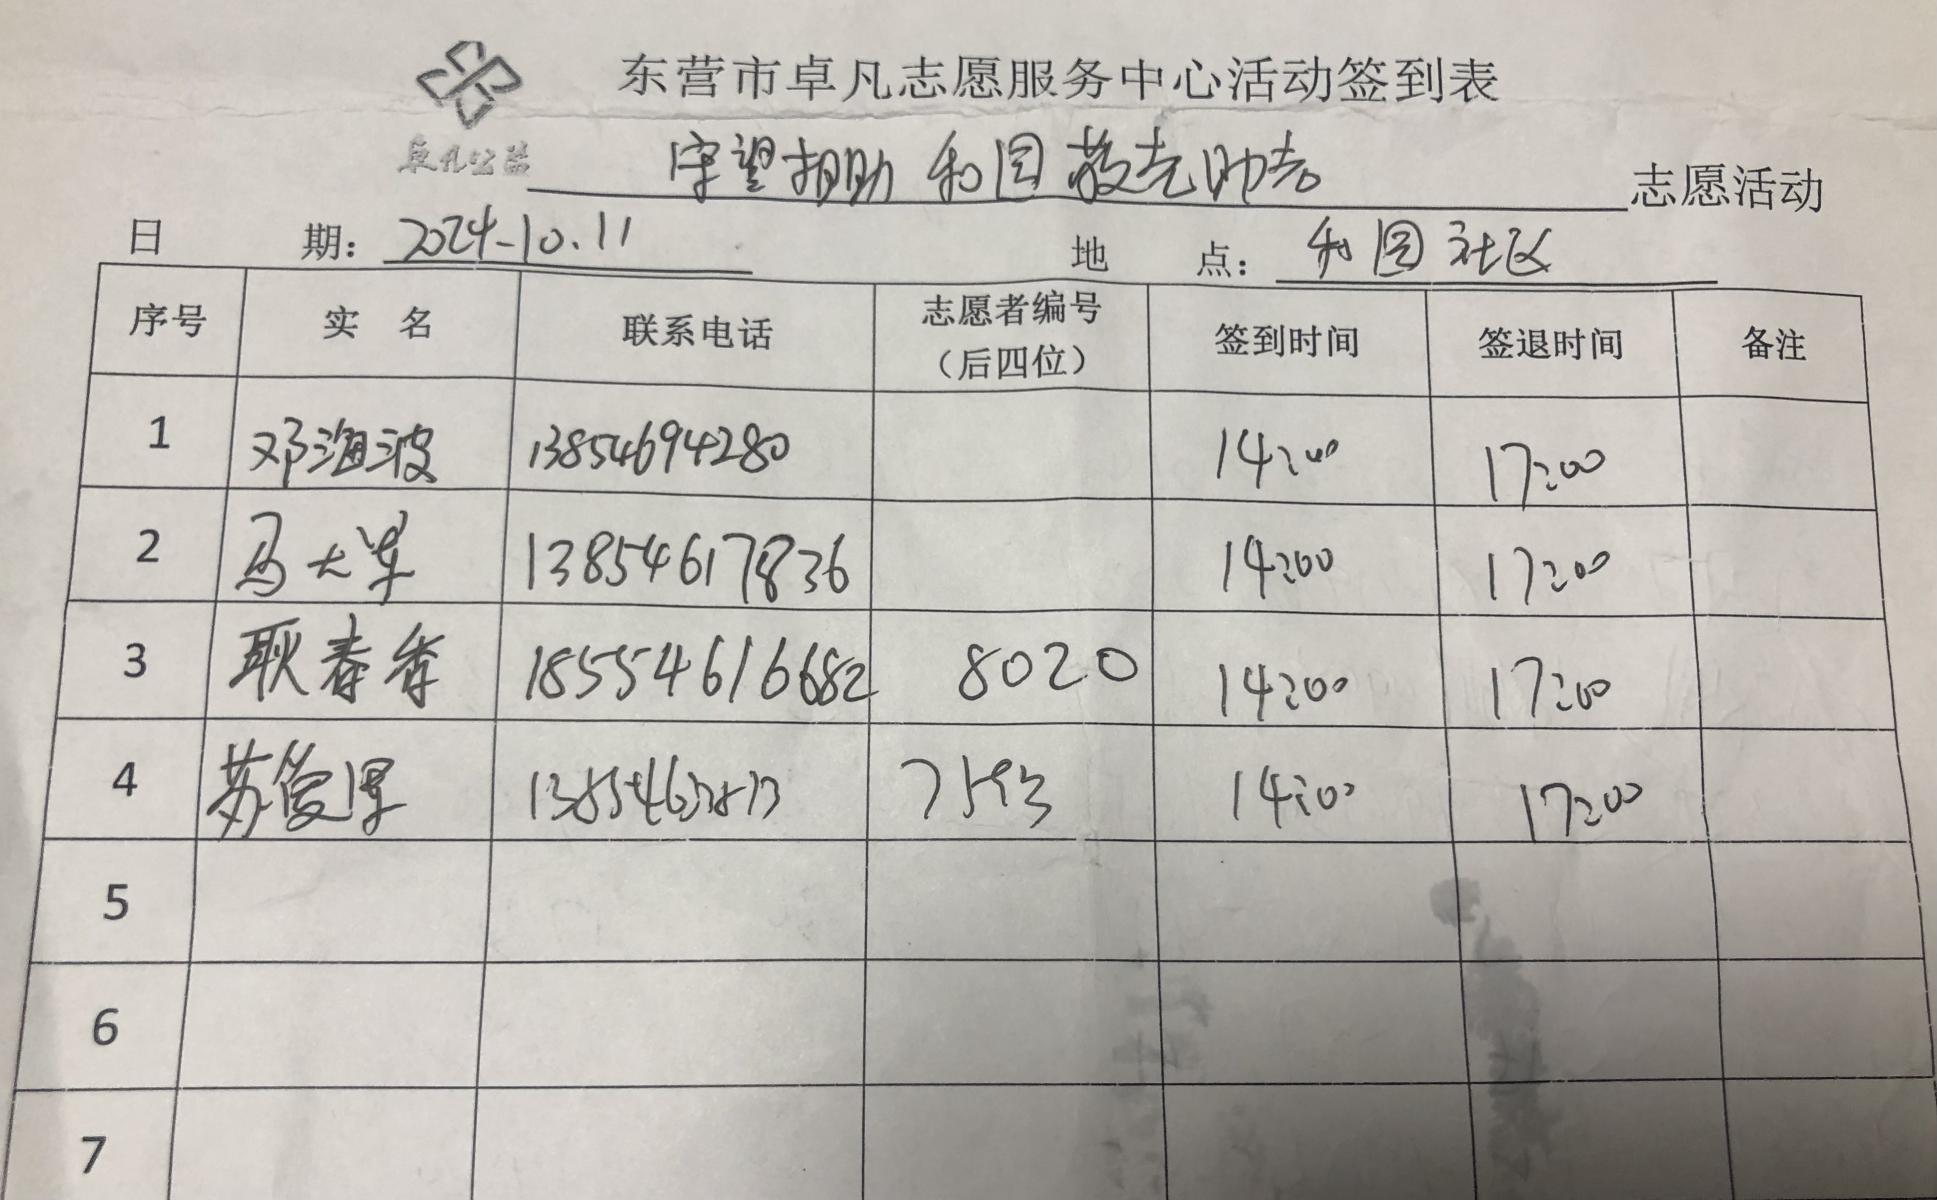 东营市卓凡志愿服务中心活动签到表
卓凡公益
守望相助 和园敬老助老 志愿活动
日 期: 2024-10.11 地 点: 和园社区
序号 实 名 联系电话 志愿者编号(后四位) 签到时间 签退时间 备注
1 邓海波 13854694280 14:00 17:00
2 马大军 13854617836 14:00 17:00
3 耿春香 18554616682 8020 14:00 17:00
4 苏俊厚 7593 14:00 17:00
5
6
7